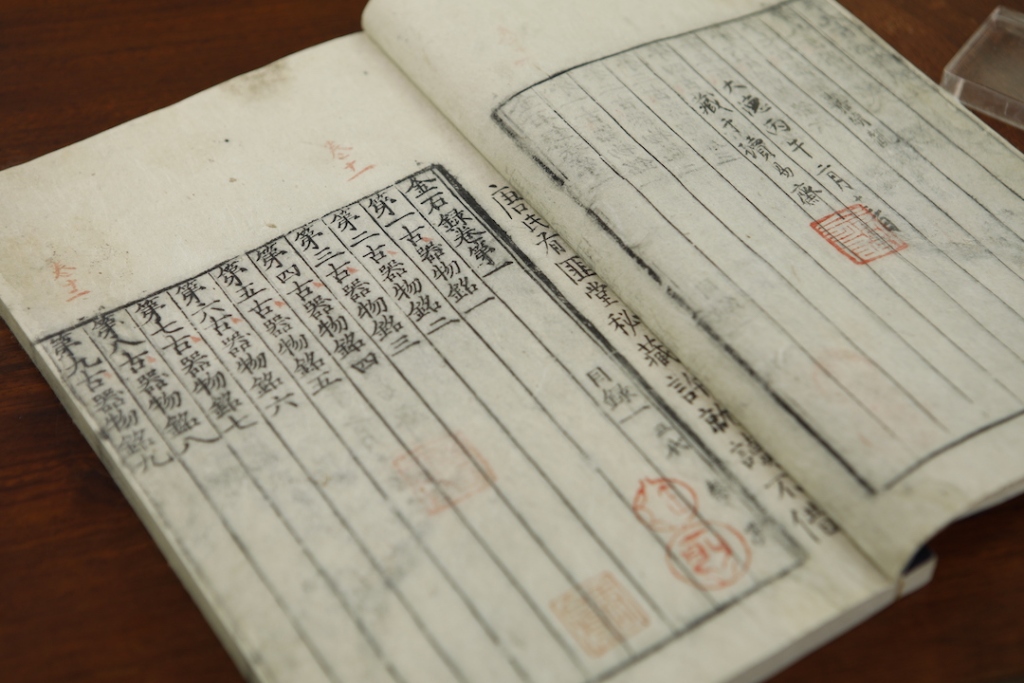 大德丙午二月
藏于讀易齋
唐氏有匪堂秘藏
不借
金石録卷第一
目録一
第一古器物銘一
第二古器物銘二
第三古器物銘三
第四古器物銘四
第五古器物銘五
第六古器物銘六
第七古器物銘七
第八古器物銘八
第九古器物銘九
卷十一
卷十一